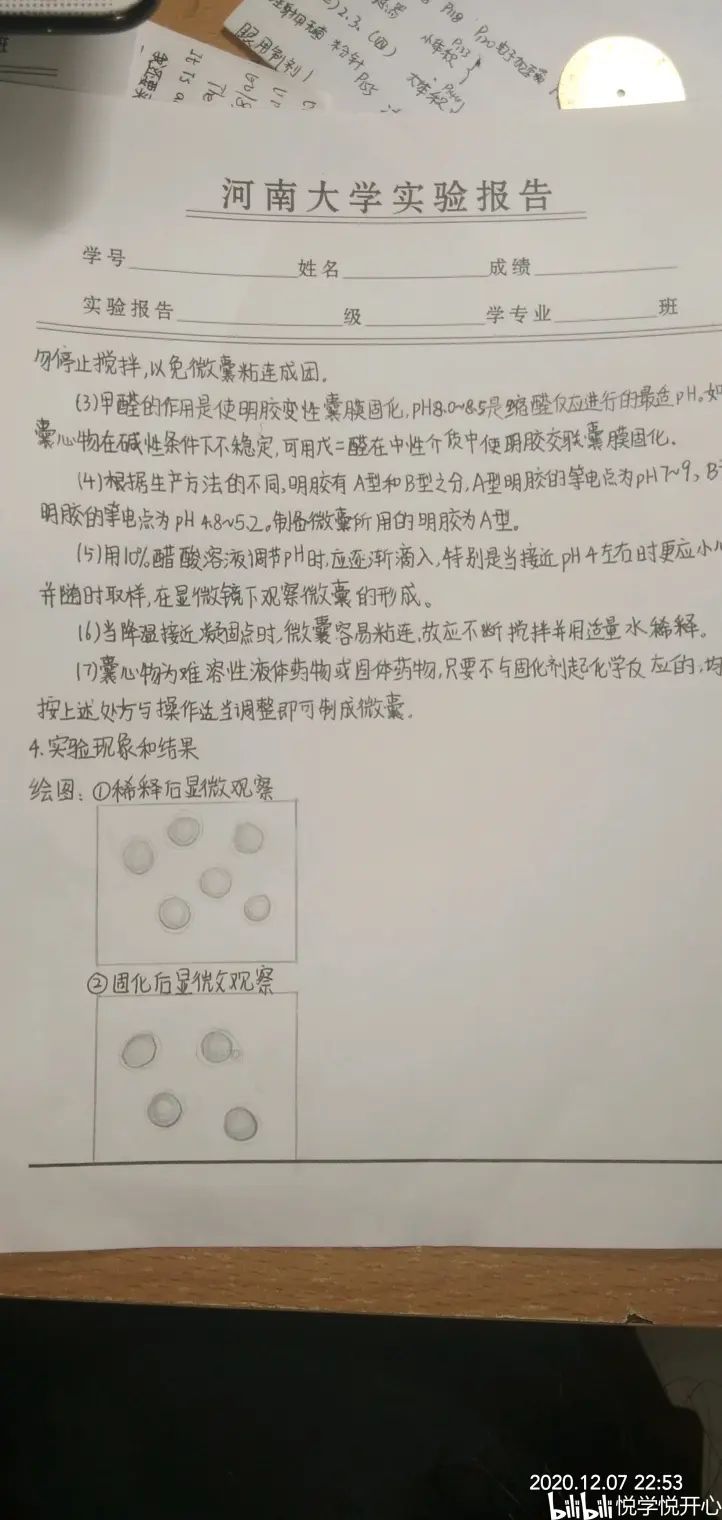 班
服用制剂
粉针 P155
小体积 P133
大体积 P144
P118
It is a
The
河南大学实验报告
学号 姓名 成绩
实验报告 级 学专业 班
勿停止搅拌,以免微囊粘连成团。
(3)甲醛的作用是使明胶变性囊膜固化,pH8.0~8.5是缩醛反应进行的最适pH。如
囊心物在碱性条件下不稳定,可用戊二醛在中性介质中使明胶交联囊膜固化.
(4)根据生产方法的不同,明胶有A型和B型之分,A型明胶的等电点为pH7~9,B
明胶的等电点为pH 4.8~5.2。制备微囊所用的明胶为A型。
(5)用10%醋酸溶液调节pH时,应逐渐滴入,特别是当接近pH4左右时更应小心
并随时取样,在显微镜下观察微囊的形成。
(6)当降温接近凝固点时,微囊容易粘连,故应不断搅拌并用适量水稀释。
(7)囊心物为难溶性液体药物或固体药物,只要不与固化剂起化学反应的,均
按上述处方与操作适当调整即可制成微囊。
4.实验现象和结果
绘图:①稀释后显微观察
②固化后显微观察
2020.12.07 22:53
bilibili 悦学悦开心